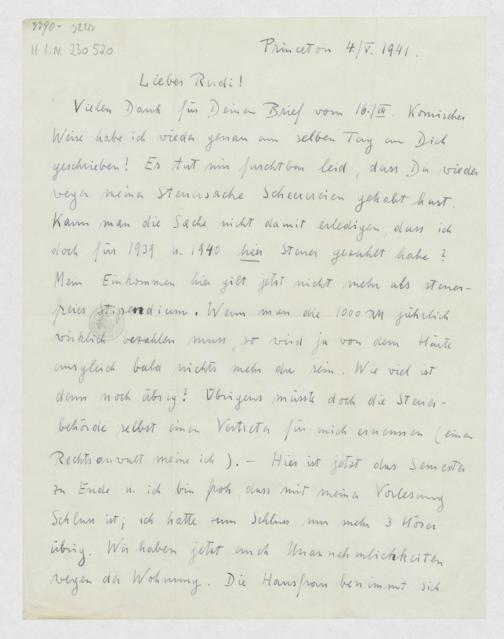 H.I.N. 230520
Princeton 4./V. 1941.
Lieber Rudi!
Vielen Dank für Deinen Brief vom 16./III. Komischer
Weise habe ich wieder genau am selben Tag an Dich
geschrieben! Es tut mir furchtbar leid, dass Du wieder
wegen meiner Steuersache Scherereien gehabt hast.
Kann man die Sache nicht damit erledigen, dass ich
doch für 1939 u. 1940 hier Steuer gezahlt habe?
Mein Einkommen hier gilt jetzt nicht mehr als steuer-
freies Stipendium. Wenn man die 1000 RM jährlich
wirklich bezahlen muss, so wird ja von dem Härte
ausgleich bald nichts mehr da sein. Wie viel ist
denn noch übrig? Übrigens müsste doch die Steuer-
behörde selbst einen Vertreter für mich ernennen (einen
Rechtsanwalt meine ich). – Hier ist jetzt das Semester
zu Ende u. ich bin froh, dass mit meiner Vorlesung
Schluss ist; ich hatte zum Schluss nur mehr 3 Hörer
übrig. Wir haben jetzt auch Unannehmlichkeiten
wegen der Wohnung. Die Hausfrau benimmt sich